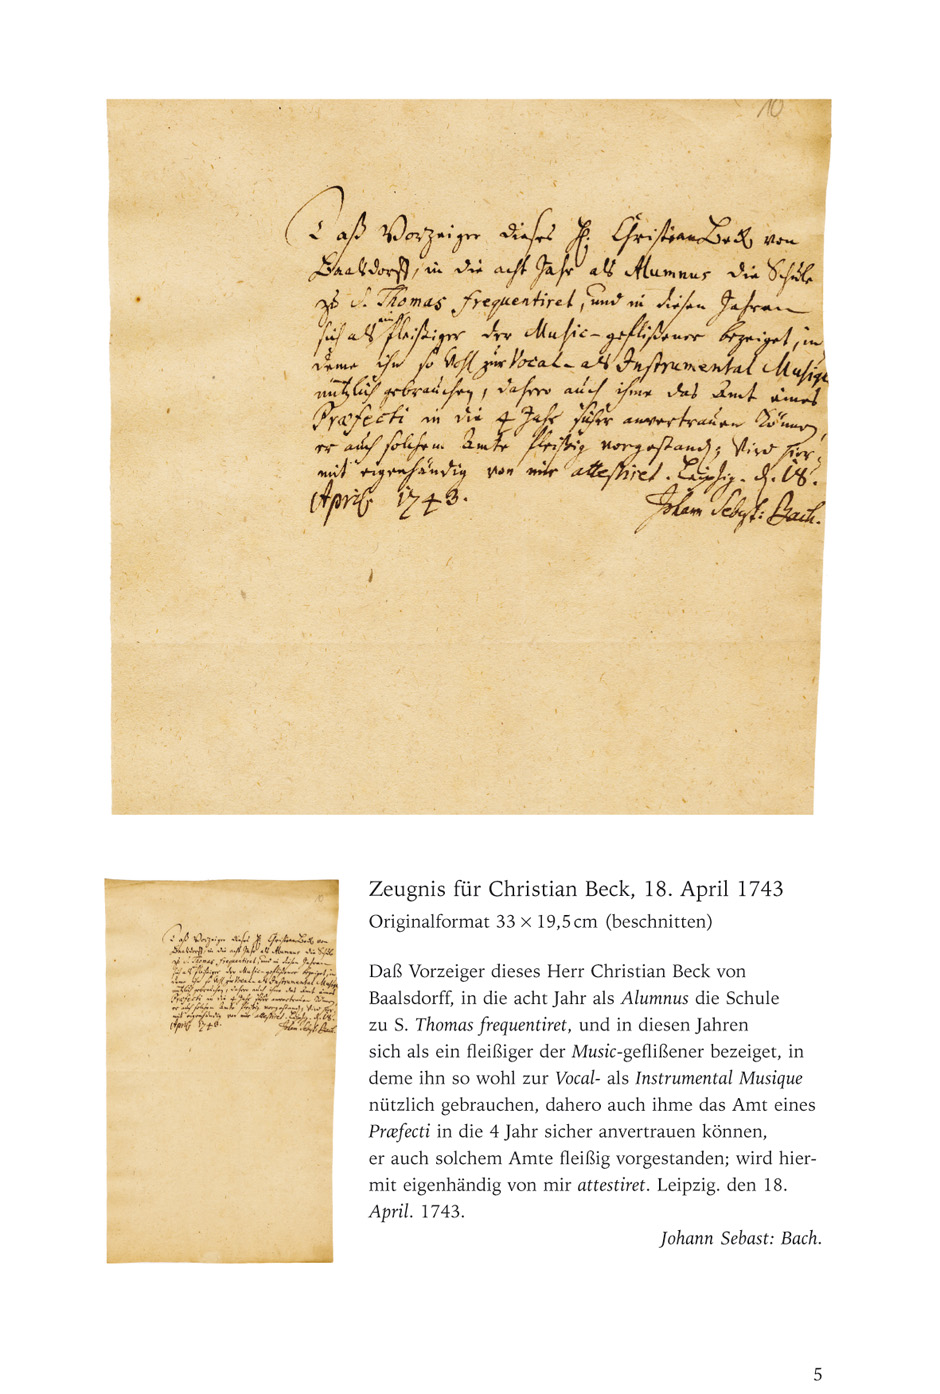 10
Daß Vorzeiger dieses H. Christian Beck von
Baalsdorff, in die acht Jahr als Alumnus die Schule
zu S. Thomas frequentiret, und in diesen Jahren
sich als ein fleißiger der Music-geflißener bezeiget, in
deme ihn so wohl zur Vocal- als Instrumental Musique
nützlich gebrauchen, dahero auch ihme das Amt eines
Præfecti in die 4 Jahr sicher anvertrauen können,
er auch solchem Amte fleißig vorgestanden; wird hier-
mit eigenhändig von mir attestiret. Leipzig. d. 18.
April. 1743.
Johann Sebast: Bach.
Zeugnis für Christian Beck, 18. April 1743
Originalformat 33 × 19,5 cm (beschnitten)
Daß Vorzeiger dieses Herr Christian Beck von
Baalsdorff, in die acht Jahr als Alumnus die Schule
zu S. Thomas frequentiret, und in diesen Jahren
sich als ein fleißiger der Music-geflißener bezeiget, in
deme ihn so wohl zur Vocal- als Instrumental Musique
nützlich gebrauchen, dahero auch ihme das Amt eines
Præfecti in die 4 Jahr sicher anvertrauen können,
er auch solchem Amte fleißig vorgestanden; wird hier-
mit eigenhändig von mir attestiret. Leipzig. den 18.
April. 1743.
Johann Sebast: Bach.
5